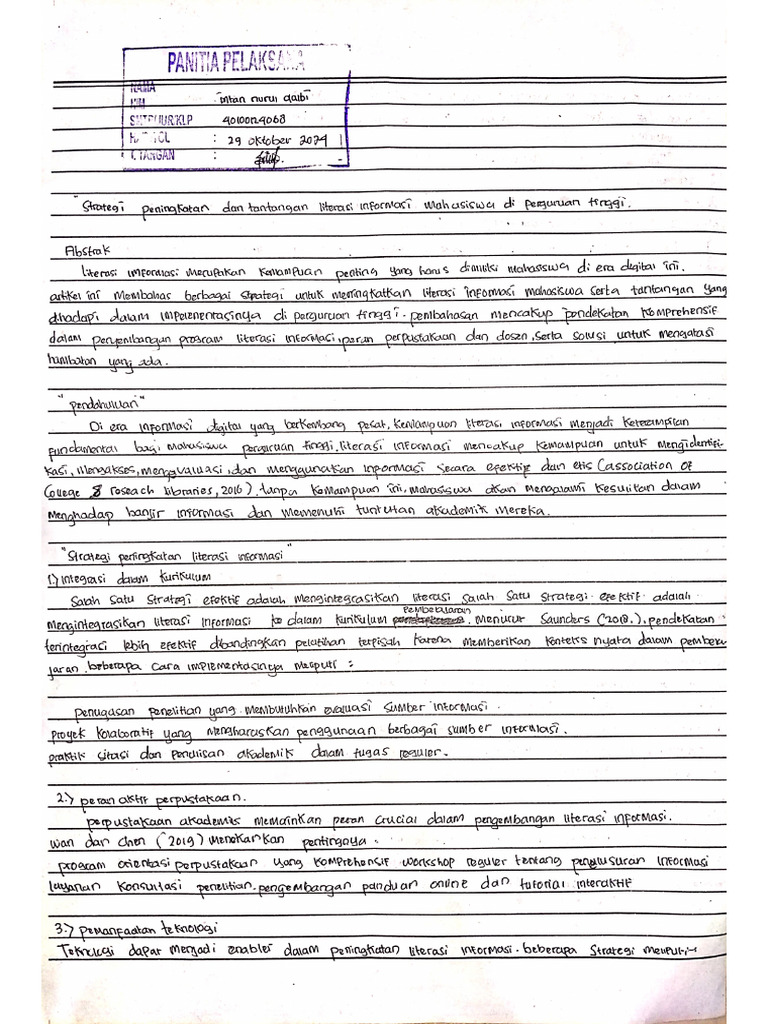 PANITIA PELAKSANA
NAMA
NIM : intan nurul qalbi
4010024068
: 29 oktober 2024
T. TANGAN :
"Strategi peningkatan dan tantangan literasi informasi Mahasiswa di perguruan tinggi.
Abstrak
Literasi informasi Merupakan Kemampuan penting yang harus dimiliki mahasiswa di era digital ini.
artikel ini Membahas berbagai strategi untuk meningkatkan literasi informasi mahasiswa serta tantangan yang
dihadapi dalam implementasinya di perguruan tinggi. pembahasan mencakup pendekatan komprehensif
dalam pengembangan program literasi informasi, peran perpustakaan dan dosen, serta solusi untuk mengatasi
hambatan yang ada.
"pendahuluan"
Di era informasi digital yang berkembang pesat, Kemampuan literasi informasi menjadi keterampilan
fundamental bagi mahasiswa perguruan tinggi, literasi informasi mencakup kemampuan untuk mengidentifi-
kasi, mengakses, mengevaluasi, dan menggunakan informasi secara efektif dan etis (association of
College & reseach libraries, 2016). tanpa kemampuan ini, mahasiswa akan mengalami kesulitan dalam
menghadap banjir informasi dan memenuhi tuntutan akademik mereka.
"Strategi peningkatan literasi informasi"
1.) integrasi dalam kurikulum
Salah satu strategi efektif adalah mengintegrasikan literasi salah satu strategi efektif adalah
mengintegrasikan literasi informasi ke dalam kurikulum pembelajaran. menurut Saunders (2018.), pendekatan
terintegrasi lebih efektif dibandingkan pelatihan terpisah karena memberikan konteks nyata dalam pembela
jaran. beberapa cara implementasinya meliputi :
penugasan penelitian yang membutuhkan evaluasi sumber informasi.
proyek kolaboratif yang mengharuskan penggunaan berbagai sumber informasi.
praktik sitasi dan penulisan akademik dalam tugas reguler.
2.) peran aktif perpustakaan.
perpustakaan akademis memainkan peran crucial dalam pengembangan literasi informasi.
wan dan chen (2019) menekankan pentingnya.
program orientasi perpustakaan yang komprehensif workshop reguler tentang penelusuran informasi
layanan konsultasi penelitian. pengembangan panduan online dan tutorial interaktif
3.) pemanfaatan teknologi
Teknologi dapat menjadi enabler dalam peningkatan literasi informasi. beberapa strategi meliputi: